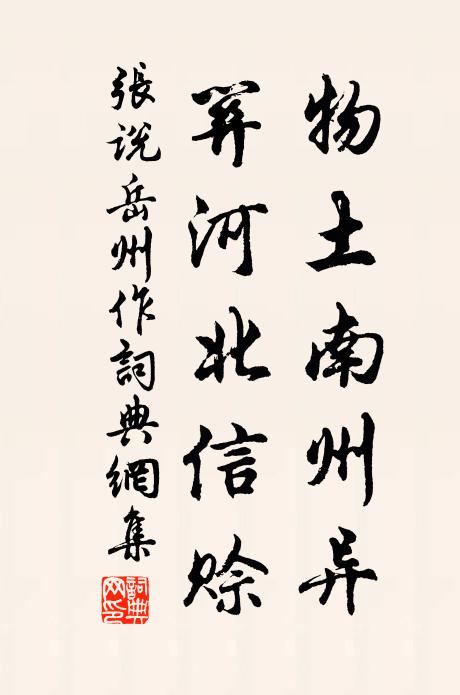 物土南州异
关河北信赊
張说岳州作詞典網集
詞典网印